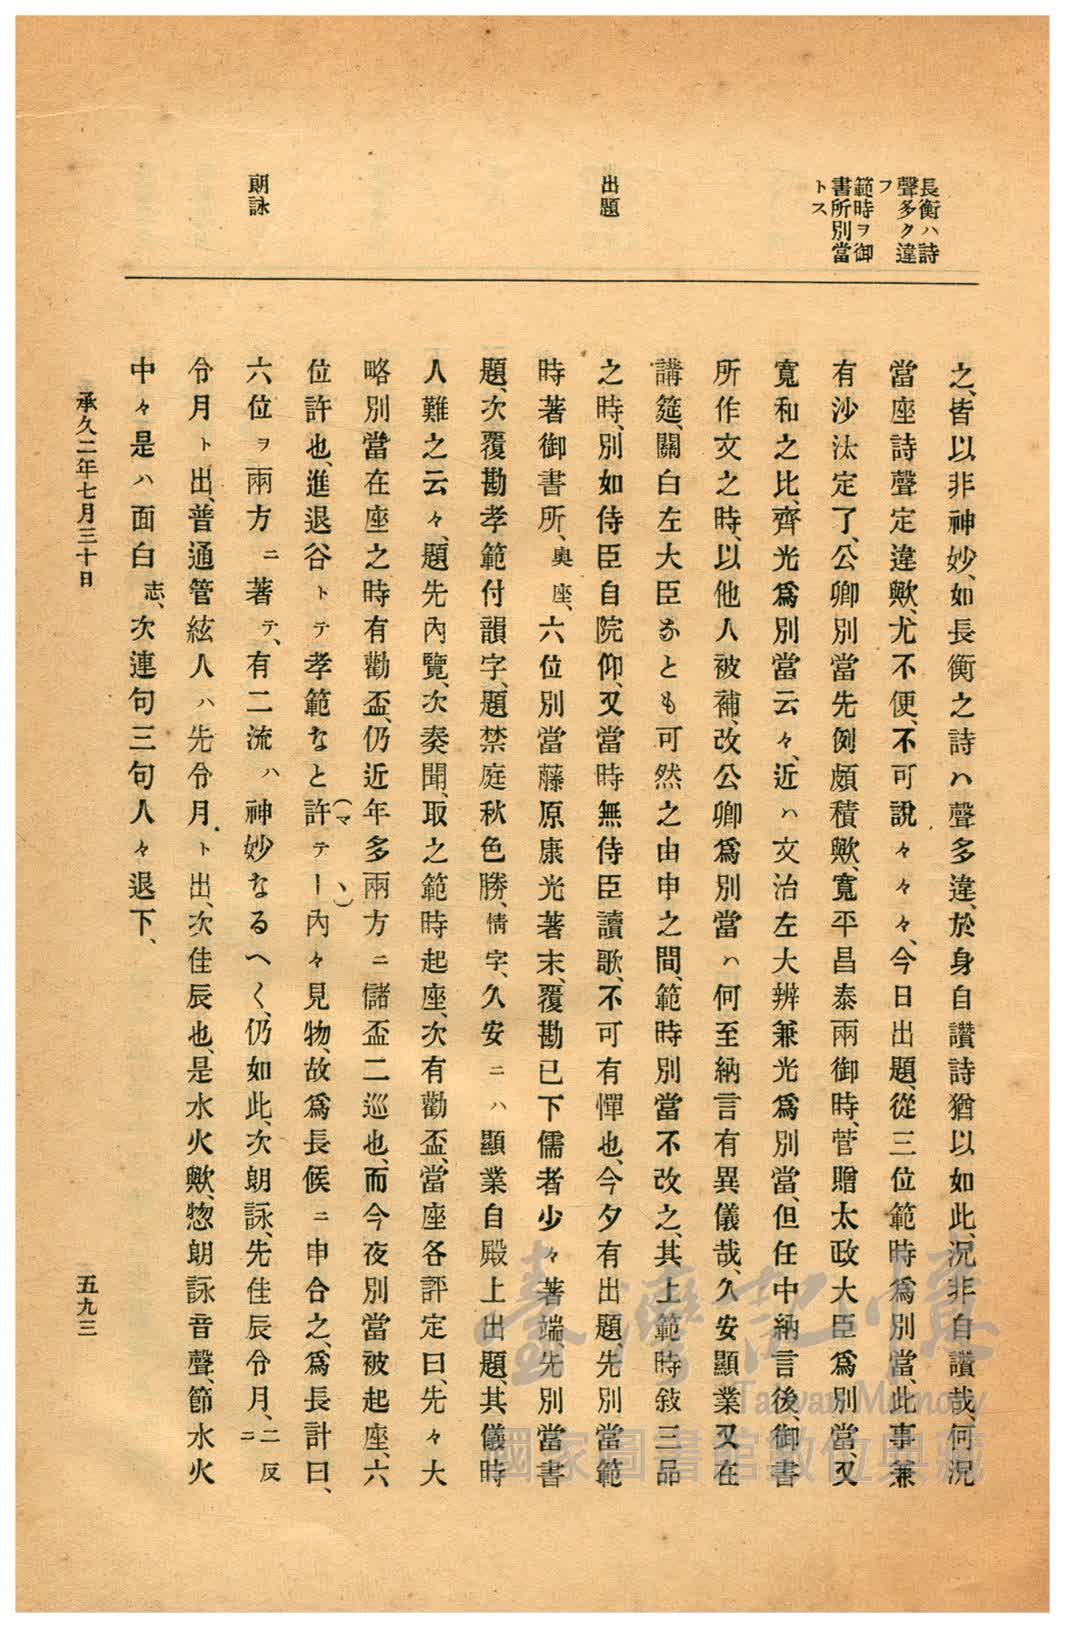 長衡ハ詩
聲多ク違
フ
範時ヲ御
書所別當
トス
出題
朗詠
之、皆以非神妙、如長衡之詩ハ聲多違、於身自讚詩猶以如此、況非自讚哉、何況
當座詩聲定違歟、尤不便、不可說々々々、今日出題、從三位範時爲別當、此事兼
有沙汰定了、公卿別當先例頗積歟、寬平昌泰兩御時、菅贈太政大臣爲別當、又
寬和之比、齊光爲別當云々、近ハ文治左大辨兼光爲別當、但任中納言後、御書
所作文之時、以他人被補、改公卿爲別當ハ何至納言有異儀哉、久安顯業又在
講筵、關白左大臣あとも可然之由申之間、範時別當不改之、其上範時敍三品
之時、別如侍臣自院仰、又當時無侍臣讀歌、不可有憚也、今夕有出題、先別當範
時著御書所、奧座、六位別當藤原康光著末、覆勘已下儒者少々著端、先別當書
題、次覆勘孝範付韻字、題禁庭秋色勝、情字、久安ニハ顯業自殿上出題、其儀時
人難之云々、題先內覽、次奏聞、取之範時起座、次有勸盃、當座各評定曰、先々大
略別當在座之時有勸盃、仍近年多兩方ニ儲盃二巡也、而今夜別當被起座、六
位許也、進退谷トテ孝範なと許テー內々見物、故爲長候ニ申合之、爲長計曰、
(マヽ)
六位ヲ兩方ニ著テ、有二流ハ神妙なるへく、仍如此、次朗詠、先佳辰令月、二反ニ
令月ト出、普通管絃人ハ先令月ト出、次佳辰也、是水火歟、惣朗詠音聲、節水火
中々是ハ面白志、次連句三句人々退下、
承久二年七月三十日
五九三
臺灣記憶
Taiwan Memory
國家圖書館數位典藏